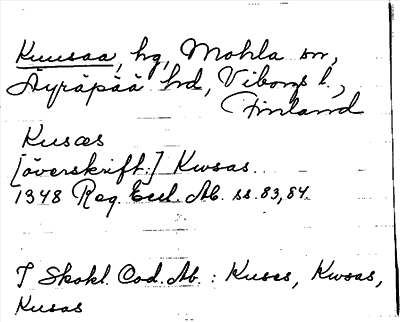 Kuusaa, hg, Mohla sn,
Äyräpää hd, Viborgs l.,
Finland
Kusæs
[överskrift:] Kwsas
1348 Reg. Eccl. Ab. ss. 83, 84.
T Skokl. Cod. Ab. : Kuses, Kwsas,
Kusas